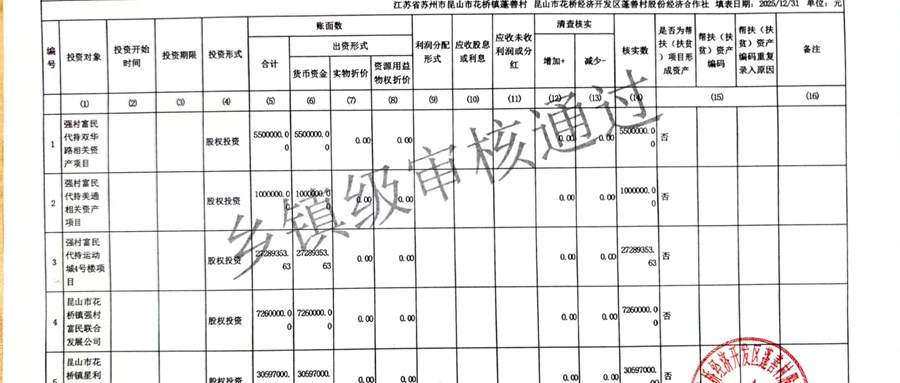 江苏省苏州市昆山市花桥镇蓬善村 昆山市花桥经济开发区蓬善村股份经济合作社 填表日期：2025/12/31 单位：元
编号 投资对象 投资开始时间 投资期限 投资形式 账面数 利润分配形式 应收股息或利息 应收未收利润或分红 清查核实 核实数 是否为帮扶（扶贫）项目形成资产 帮扶（扶贫）资产编码 帮扶（扶贫）资产编码重复录入原因 备注
合计 出资形式 增加+ 减少-
货币资金 实物折价 资源用益物权折价
(1) (2) (3) (4) (5) (6) (7) (8) (9) (10) (11) (12) (13) (14) (15) (16)
1 强村富民代持双华路相关资产项目 股权投资 5500000.00 5500000.00 0.00 0.00 0.00 0.00 5500000.00 否
2 强村富民代持美通相关资产项目 股权投资 1000000.00 1000000.00 0.00 0.00 0.00 0.00 1000000.00 否
3 强村富民代持运动城4号楼项目 股权投资 27289353.63 27289353.63 0.00 0.00 0.00 0.00 27289353.63 否
4 昆山市花桥镇强村富民联合发展公司 股权投资 7260000.00 7260000.00 0.00 0.00 0.00 0.00 7260000.00 否
昆山市花桥镇星利 股权投资 30597000. 30597000. 0.00 0.00 0.00 0.00 30597000. 否
乡镇级审核通过
桥经济开发区蓬善村